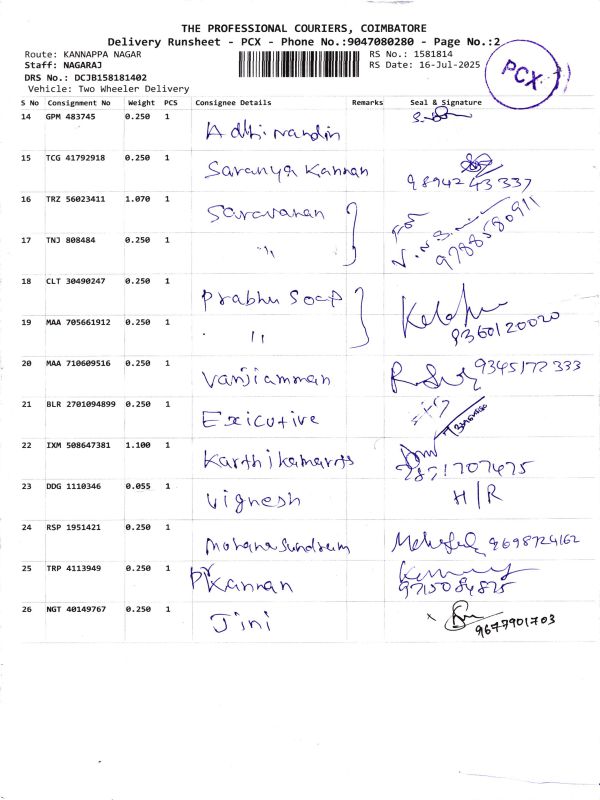 THE PROFESSIONAL COURIERS, COIMBATORE
Delivery Runsheet - PCX - Phone No.:9047080280 - Page No.:2
Route: KANNAPPA NAGAR RS No.: 1581814
Staff: NAGARAJ RS Date: 16-Jul-2025
DRS No.: DCJB158181402
Vehicle: Two Wheeler Delivery
PCX
S No Consignment No Weight PCS Consignee Details Remarks Seal & Signature
14 GPM 483745 0.250 1 Adhinandin
15 TCG 41792918 0.250 1 Saranya Kannan 9894243337
16 TRZ 56023411 1.070 1 Saravanan
17 TNJ 808484 0.250 1 " 9788580911
18 CLT 30490247 0.250 1 Prabhu Soap
19 MAA 705661912 0.250 1 " 9360120020
20 MAA 710609516 0.250 1 Vanjiamman 9345172333
21 BLR 2701094899 0.250 1 Exicutive
22 IXM 508647381 1.100 1
23 DDG 1110346 0.055 1 Vignesh H/R
24 RSP 1951421 0.250 1 Mohanasundram 9698724162
25 TRP 4113949 0.250 1 Kannan 9715084825
26 NGT 40149767 0.250 1 Jini x 9677901703